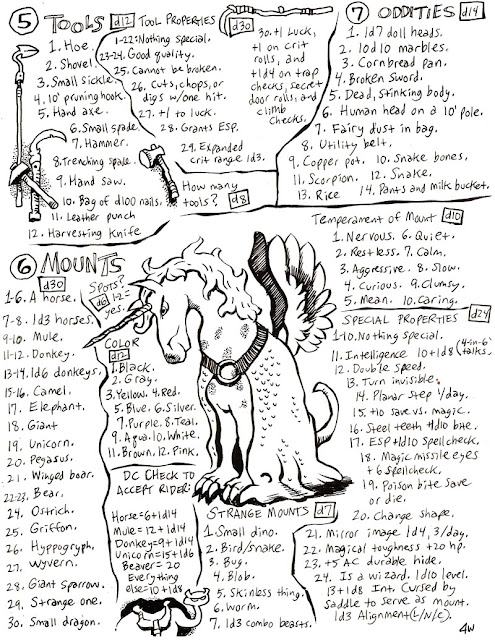 5 TOOLS d12
1. Hoe.
2. Shovel.
3. Small sickle.
4. 10' pruning hook.
5. Hand axe.
6. Small spade
7. Hammer.
8. Trenching spade.
9. Hand saw.
10. Bag of d100 nails.
11. Leather punch
12. Harvesting Knife
TOOL PROPERTIES d30
1-22: Nothing special.
23-24. Good quality.
25. Cannot be broken.
26. Cuts, chops, or
digs w/one hit.
27. +1 to luck.
28. Grants ESP.
29. Expanded
crit range 1d3.
30. +1 Luck,
+1 on crit
rolls, and
+1d4 on trap
checks, secret
door rolls, and
climb
checks.
How many
tools? d8
7 ODDITIES d14
1. 1d7 doll heads.
2. 10d10 marbles.
3. Cornbread pan.
4. Broken sword.
5. Dead, stinking body.
6. Human head on a 10' pole.
7. Fairy dust in bag.
8. Utility belt.
9. Copper pot. 10. Snake bones,
11. Scorpion. 12. Snake.
13. Rice 14. Pants and milk bucket.
6 MOUNTS
d30
1-6. A horse.
7-8. 1d3 horses.
9-10. Mule.
11-12. Donkey.
13-14. 1d6 donkeys.
15-16. Camel.
17. Elephant.
18. Giant
19. Unicorn.
20. Pegasus.
21. Winged boar.
22-23. Bear.
24. Ostrich.
25. Griffon.
26. Hyppogryph.
27. Wyvern.
28. Giant Sparrow.
29. Strange one.
30. Small dragon.
Spots?
d6 1-2=
yes.
COLOR
d12
1. Black.
2. Gray.
3. Yellow. 4. Red.
5. Blue. 6. Silver.
7. Purple. 8. Teal.
9. Aqua. 10. White.
11. Brown. 12. Pink.
DC CHECK TO
ACCEPT RIDER:
Horse=6+1d14
Mule=12+1d14
Donkey=9+1d14
Unicorn=15+1d6
Beaver=20
Everything
else=10+1d8
STRANGE MOUNTS d7
1. Small dino.
2. Bird/snake.
3. Bug.
4. Blob.
5. Skinless thing.
6. Worm.
7. 1d3 combo beasts.
Temperament of Mount d10
1. Nervous. 6. Quiet.
2. Restless. 7. Calm.
3. Aggressive. 8. Slow.
4. Curious. 9. Clumsy.
5. Mean. 10. Caring.
SPECIAL PROPERTIES d24
1-10. Nothing special.
11. Intelligence 10+1d8 (4-in-6 talks.
12. Double speed.
13. Turn invisible.
14. Planar step 1/day.
15. +10 save vs. magic.
16. Steel teeth +1d10 bite.
17. ESP +1d10 Spellcheck.
18. Magic missile eyes
+6 spellcheck.
19. Poison bite save
or die.
20. Change shape.
21. Mirror image 1d4, 3/day.
22. Magical toughness +20 hp.
23. +5 AC durable hide.
24. Is a wizard. 1d10 level.
13+1d8 Int. Cursed by
saddle to serve as mount.
1d3 Alignment (L/N/C).